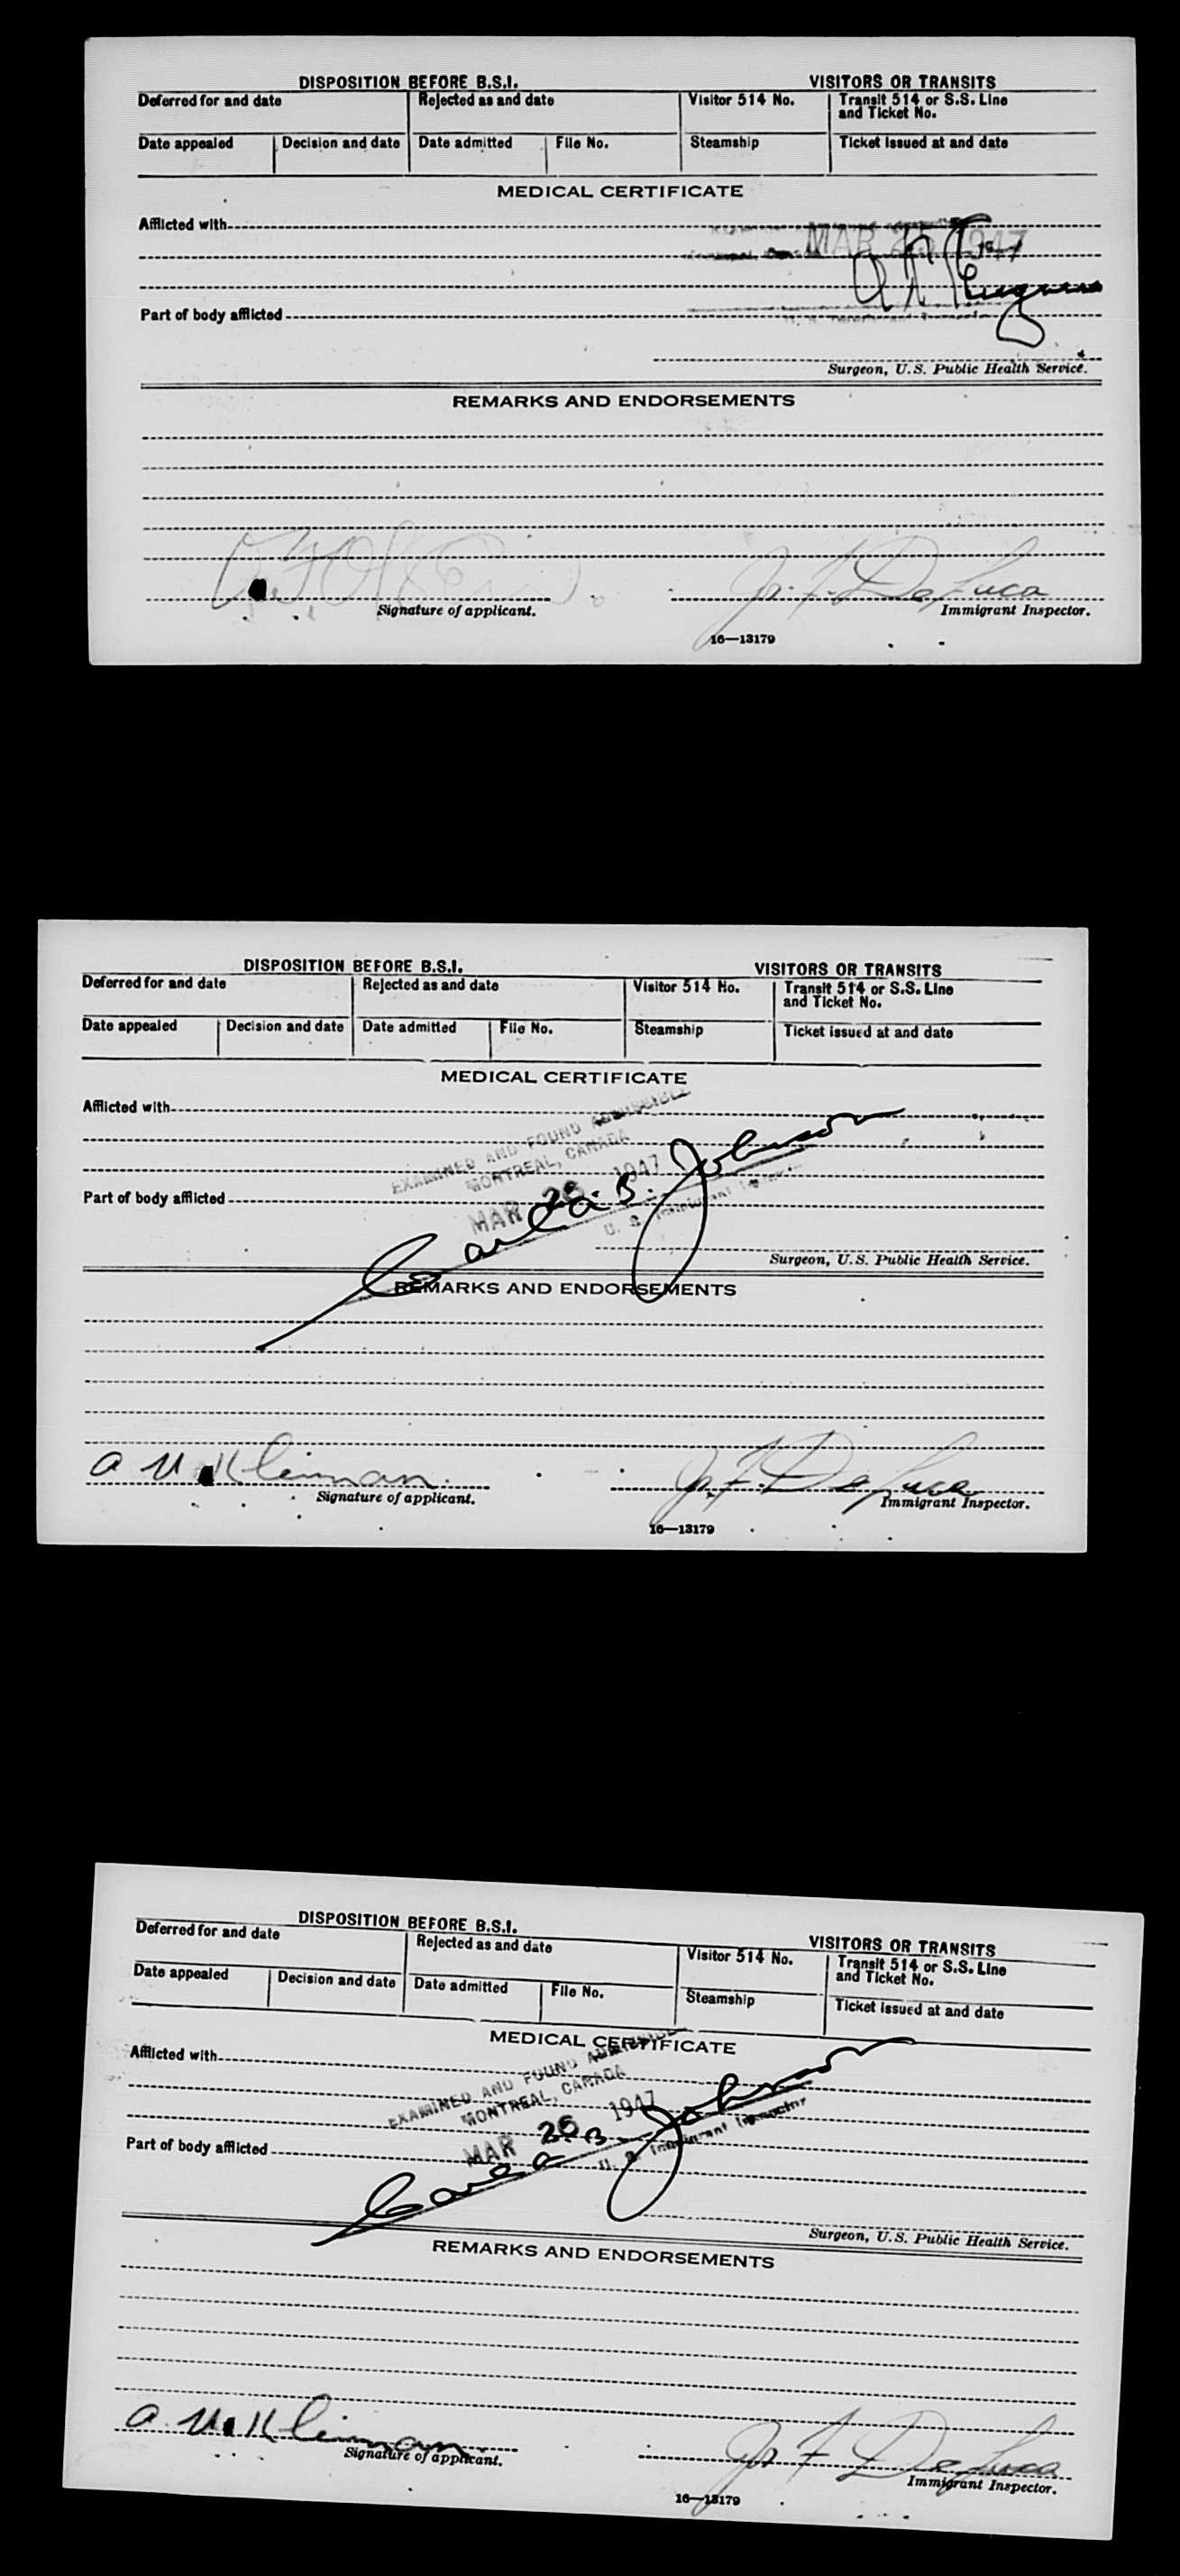 DISPOSITION BEFORE B.S.I. VISITORS OR TRANSITS
Deferred for and date Rejected as and date Visitor 514 No. Transit 514 or S.S. Line
and Ticket No.
Date appealed Decision and date Date admitted File No. Steamship Ticket issued at and date
MEDICAL CERTIFICATE
Afflicted with
MAR 1947
Part of body afflicted
Surgeon, U.S. Public Health Service.
REMARKS AND ENDORSEMENTS
Jr. F. De Luca
Signature of applicant. Immigrant Inspector.
16—13179
DISPOSITION BEFORE B.S.I. VISITORS OR TRANSITS
Deferred for and date Rejected as and date Visitor 514 No. Transit 514 or S.S. Line
and Ticket No.
Date appealed Decision and date Date admitted File No. Steamship Ticket issued at and date
MEDICAL CERTIFICATE
Afflicted with
EXAMINED AND FOUND ADMISSIBLE
MONTREAL, CANADA
MAR 26 1947
Carl a. B. Johnson
U. S. Immigrant Inspector
Part of body afflicted
Surgeon, U.S. Public Health Service.
REMARKS AND ENDORSEMENTS
a M Kleinman. Jr. F. De Luca
Signature of applicant. Immigrant Inspector.
16—13179
DISPOSITION BEFORE B.S.I. VISITORS OR TRANSITS
Deferred for and date Rejected as and date Visitor 514 No. Transit 514 or S.S. Line
and Ticket No.
Date appealed Decision and date Date admitted File No. Steamship Ticket issued at and date
MEDICAL CERTIFICATE
Afflicted with
EXAMINED AND FOUND ADMISSIBLE
MONTREAL, CANADA
MAR 26 1947
Carl a. B. Johnson
U. S. Immigrant Inspector
Part of body afflicted
Surgeon, U.S. Public Health Service.
REMARKS AND ENDORSEMENTS
a M Kleinman. Jr. F. De Luca
Signature of applicant. Immigrant Inspector.
16—13179